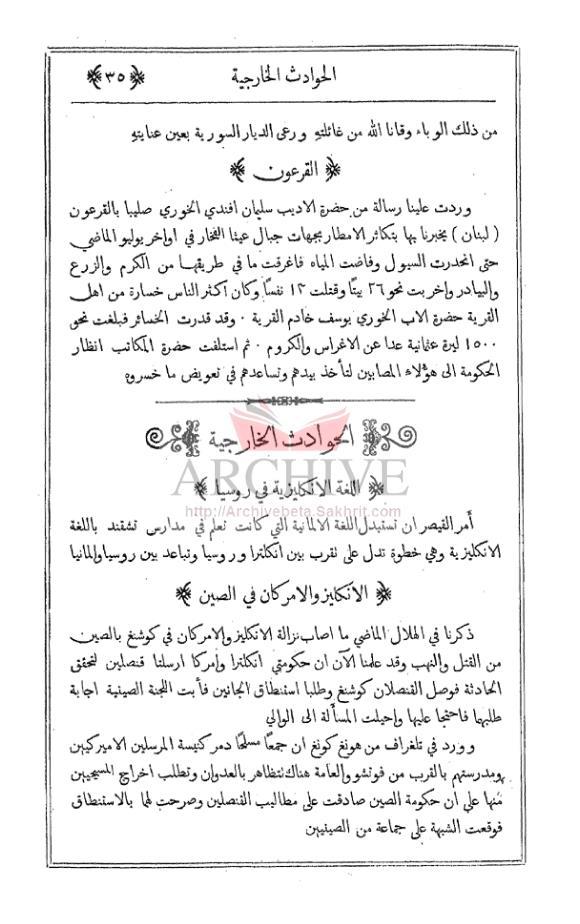 الحوادث الخارجية
٣٥
من ذلك الوباء وقانا الله من غائلتهِ ورعى الديار السورية بعين عنايتهِ
القرعون
وردت علينا رسالة من حضرة الاديب سليمان افندي الخوري صليبا بالقرعون
( لبنان ) يخبرنا بها بتكاثر الامطار بجهات جبال عيثا الفخار في اواخر يوليو الماضي
حتى انحدرت السيول وفاضت المياه فاغرقت ما في طريقها من الكرم والزرع
والبيادر واخربت نحو ٢٦ بيتًا وقتلت ١٢ نفسًا وكان اكثر الناس خسارة من اهل
القرية حضرة الاب الخوري يوسف خادم القرية ٠ وقد قدرت الخسائر فبلغت نحو
١٥٠٠ ليرة عثمانية عدا عن الاغراس والكروم ٠ ثم استلفت حضرة المكاتب انظار
الحكومة الى هؤلاء المصابين لتأخذ بيدهم وتساعدهم في تعويض ما خسروه
الحوادث الخارجية
ARCHIVE
اللغة الانكليزية في روسيا
http://Archivebeta.Sakhrit.com
أمر القيصر ان تستبدل اللغة الالمانية التي كانت تعلم في مدارس تشقند باللغة
الانكليزية وهي خطوة تدل على تقرب بين انكلترا وروسيا وتباعد بين روسيا والمانيا
الانكليز والامركان في الصين
ذكرنا في الهلال الماضي ما اصاب نزالة الانكليز والامركان في كوشنغ بالصين
من القتل والنهب وقد علمنا الآن ان حكومتي انكلترا وامركا ارسلتا قنصلين لتحقق
الحادثة فوصل القنصلان كوشنغ وطلبا استنطاق الجانين فأبت اللجنة الصينية اجابة
طلبهما فاحتجا عليها واحيلت المسألة الى الوالي
وورد في تلغراف من هونغ كونغ ان جمعًا مسلحًا دمر كنيسة المرسلين الاميركيين
ومدرستهم بالقرب من فوتشو والعامة هناك تتظاهر بالعدوان وتطلب اخراج المسيحيين
منها على ان حكومة الصين صادقت على مطاليب القنصلين وصرحت لهما بالاستنطاق
فوقعت الشبهة على جماعة من الصينيين